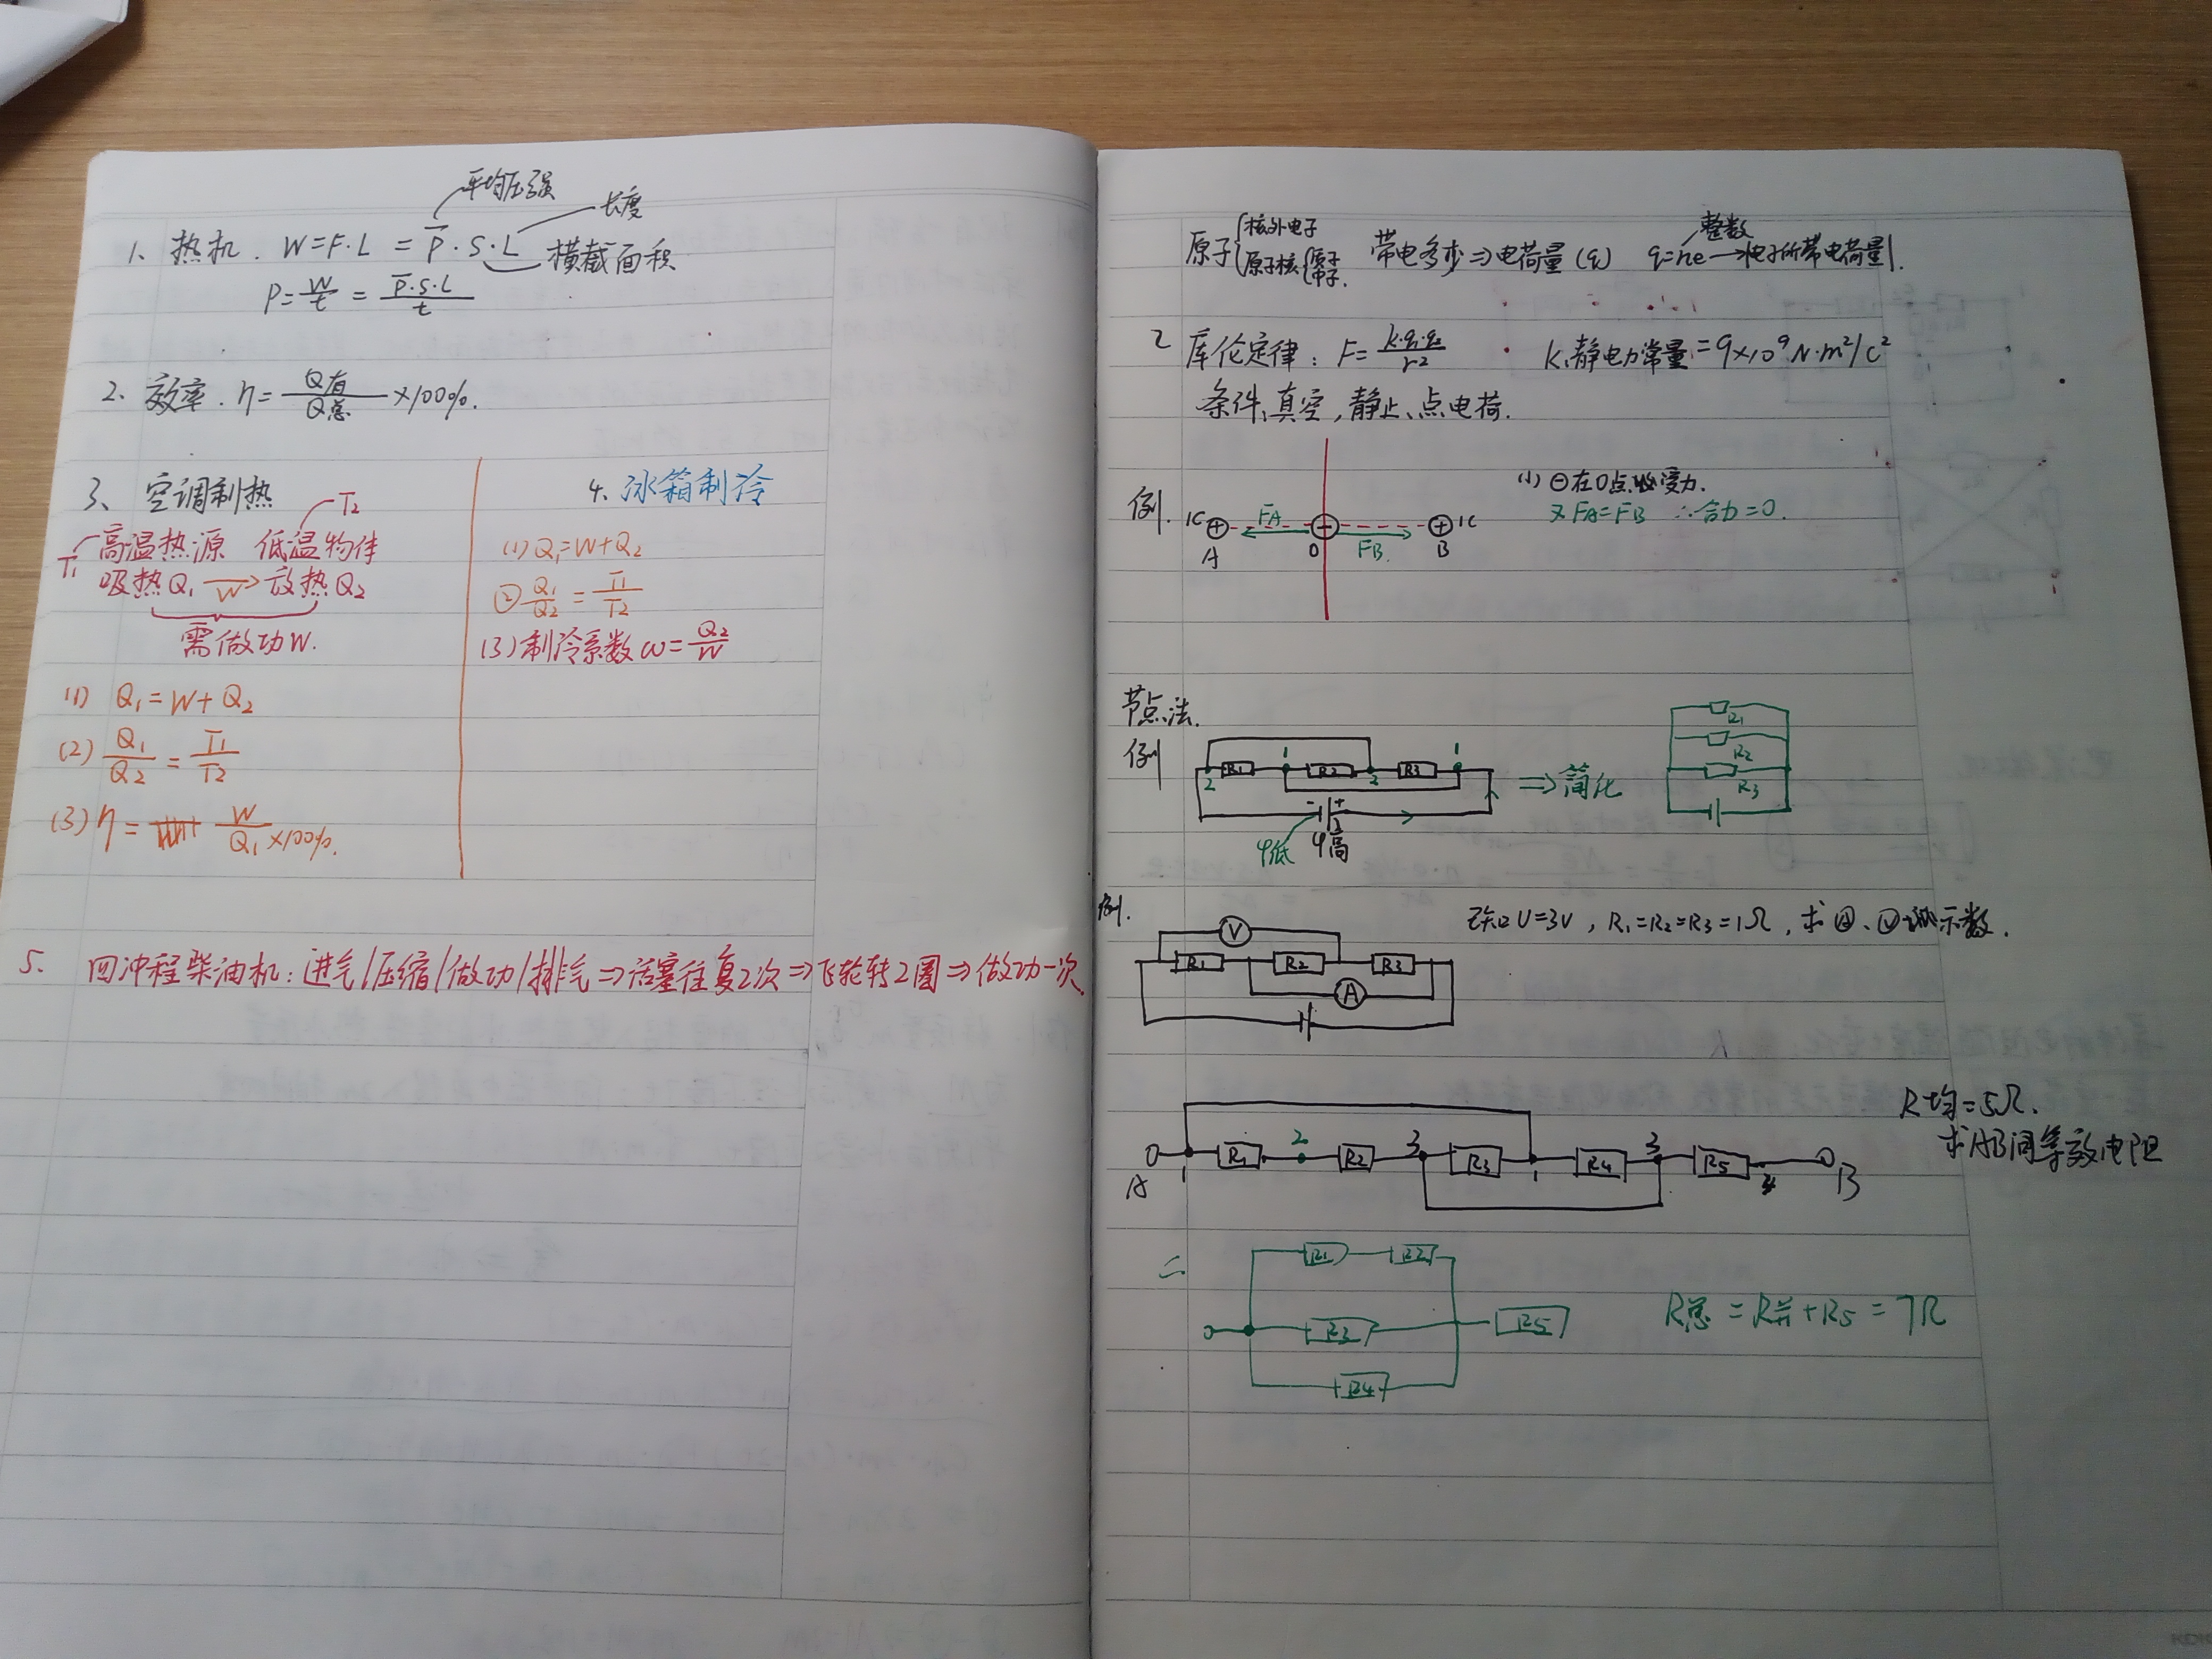 平均压强
长度
1、热机. W=F·L = P̅·S·L 横截面积
P=W/t = P̅·S·L/t
2、效率. η=Q有/Q总×100%.
3、空调制热
T2
T1 高温热源 低温物体
吸热Q1 W→ 放热Q2
需做功W.
(1) Q1=W+Q2
(2) Q1/Q2 = T1/T2
(3) η= W/Q1×100%.
4、冰箱制冷
(1) Q1=W+Q2
② Q1/Q2 = T1/T2
(3) 制冷系数 ω=Q2/W
5. 四冲程柴油机: 进气/压缩/做功/排气⇒活塞往复2次⇒飞轮转2圈⇒做功一次
整数
原子{核外电子 原子核{质子 中子. 带电多少⇒电荷量(q) q=ne→|电子所带电荷量|.
2 库伦定律: F=k·q1·q2/r² k:静电力常量=9×10⁹N·m²/C²
条件:真空,静止、点电荷.
例. 1C ⊕ FA ⊖ FB ⊕ 1C
A O B
(1) ⊖在O点处受力.
又FA=FB ∴合力=0.
节点法.
例
2 R1 1 R2 2 R3 1
- +
φ低 φ高
⇒简化
R1
R2
R3
例. 已知U=3V, R1=R2=R3=1Ω, 求Ⓐ、Ⓥ示数.
V
R1 R2 R3
A
R均=5Ω.
求AB间等效电阻
A 1 R1 2 R2 3 R3 1 R4 3 R5 4 B
R1 R2
R3 R5
R4
R总=R并+R5=7Ω